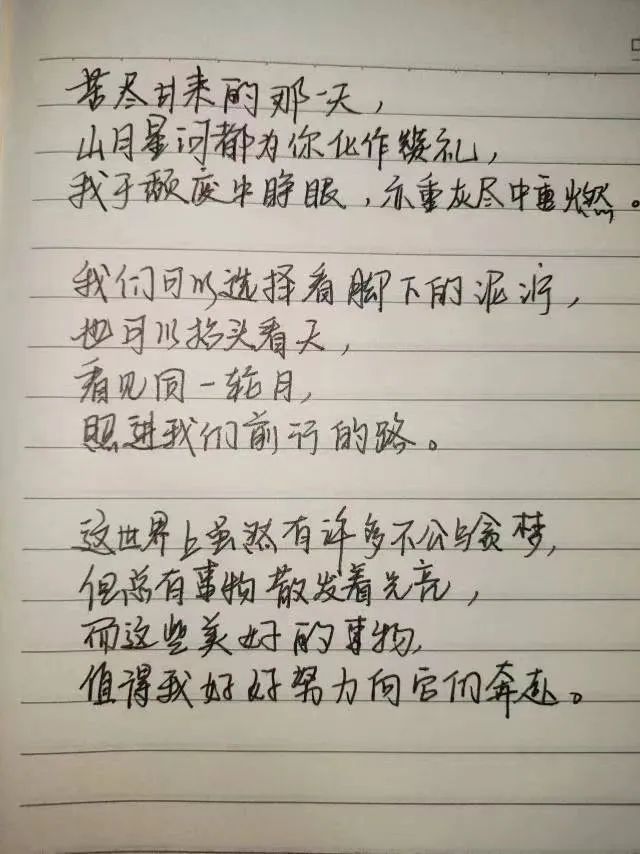 苦尽甘来的那一天，
山月星河都为你化作贺礼，
我于颓废中睁眼，亦重灰尽中重燃。
我们可以选择看脚下的泥泞，
也可以抬头看天，
看见同一轮月，
照进我们前行的路。
这世界上虽然有许多不公与贪婪，
但总有事物散发着光亮，
而这些美好的事物，
值得我好好努力向它们奔赴。